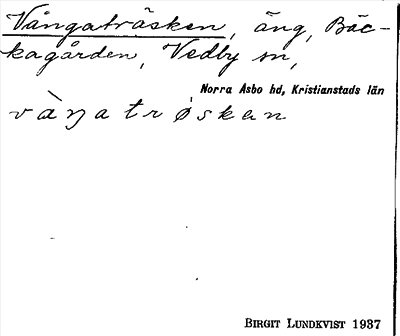 Vångaträsken, äng, Bäc-
kagården, Vedby sn,
Norra Åsbo hd, Kristianstads län
vàŋatrøskan
BIRGIT LUNDKVIST 1937